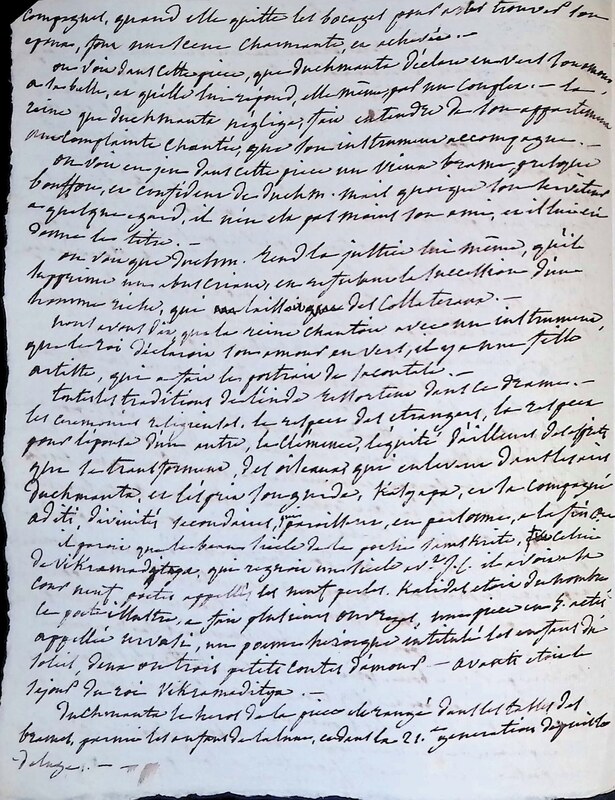 compagnes, quand elle quitte les bocages pour aller trouver son
epoux, font une scene charmante, et achevée. —
on voit dans cette piece, que duchmanta déclare en vers son amour,
a la belle, et qu'elle lui répond, elle même, par un couplet. — la
reine que duchmanta néglige, fait entendre de son appartement
une complainte chantée, que son instrument accompagne. —
on voit en jeu dans cette piece un vieux brame grotesque
bouffon, et confident de duchm. mais quoique son serviteur
a quelque egard, il n'en est pas moins son ami, et il lui en
donne le titre. —
on voit que duchm. rend la justice lui même, qu'il
supprime un abus criant, en refusant la succession d'un
homme riche, qui laissait que des collateraux. —
nous avons dit que la reine chantait avec un instrument,
que le roi déclarait son amour en vers, il y a une fille
artiste, qui a fait le portrait de sacontala. —
toutes les traditions de l'inde ressortent dans ce drame. —
les ceremonies religieuses, le respect des etrangers, le respect
pour l'épouse d'un autre, la clémence, l'équité d'ailleurs des esprits
que se transforment, des oiseaux qui enlevent dans les airs
Duchmanta, et l'esprit son guide, Kasyapa, et sa compagne
aditi, divinités secondaires, paraissent, en personne, a la fin
il parait que le beau siècle de la poesie samskrite, celui
de Vikramaditya qui regnait un siecle av. J. C. il avoit a sa
cour neuf poetes appellés les neuf perles. Kalidas etait du nombre
ce poete illustre, a fait plusieurs ouvrages, une piece en 5. actes
appellée urvasi, un poeme heroique intitulé les enfans du
soleil, deux ou trois petits contes d'amour — avanti etait le
séjour du roi Vikramaditya. —
Duchmanta le heros de la piece est rangé dans les tables des
brames, parmi les enfans de la lune, et dans la 21.e generation depuis le
deluge. — —